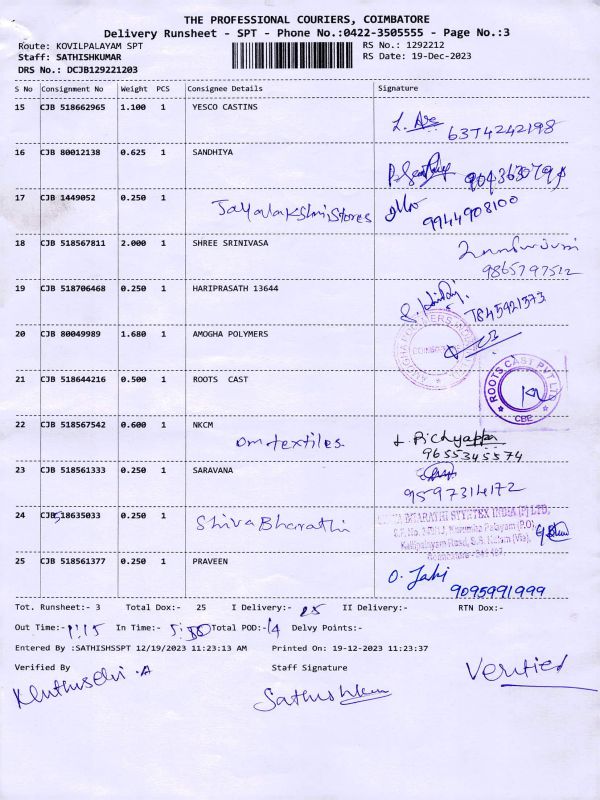 THE PROFESSIONAL COURIERS, COIMBATORE
Delivery Runsheet - SPT - Phone No.:0422-3505555 - Page No.:3
Route: KOVILPALAYAM SPT RS No.: 1292212
Staff: SATHISHKUMAR RS Date: 19-Dec-2023
DRS No.: DCJB129221203
S No Consignment No Weight PCS Consignee Details Signature
15 CJB 518662965 1.100 1 YESCO CASTINS
6374242198
16 CJB 80012138 0.625 1 SANDHIYA
17 CJB 1449052 0.250 1 Jayalakshmi Stores
9944908100
18 CJB 518567811 2.000 1 SHREE SRINIVASA
9865797512
19 CJB 518706468 0.250 1 HARIPRASATH 13644
7845921573
20 CJB 80049989 1.680 1 AMOGHA POLYMERS
21 CJB 518644216 0.500 1 ROOTS CAST
ROOTS CAST PVT LTD
CBE
22 CJB 518567542 0.600 1 NKCM
om textiles
9655345574
23 CJB 518561333 0.250 1 SARAVANA
9597314172
24 CJB 518635033 0.250 1 Shiva Bharathi
BHARATHI SYNTEX INDIA (P) LTD,
25 CJB 518561377 0.250 1 PRAVEEN
9095991999
Tot. Runsheet:- 3 Total Dox:- 25 I Delivery:- 25 II Delivery:- RTN Dox:-
Out Time:- 1:15 In Time:- 5:30 Total POD:- 14 Delvy Points:-
Entered By :SATHISHSSPT 12/19/2023 11:23:13 AM Printed On: 19-12-2023 11:23:37
Verified By Staff Signature Verified
Sathishkum